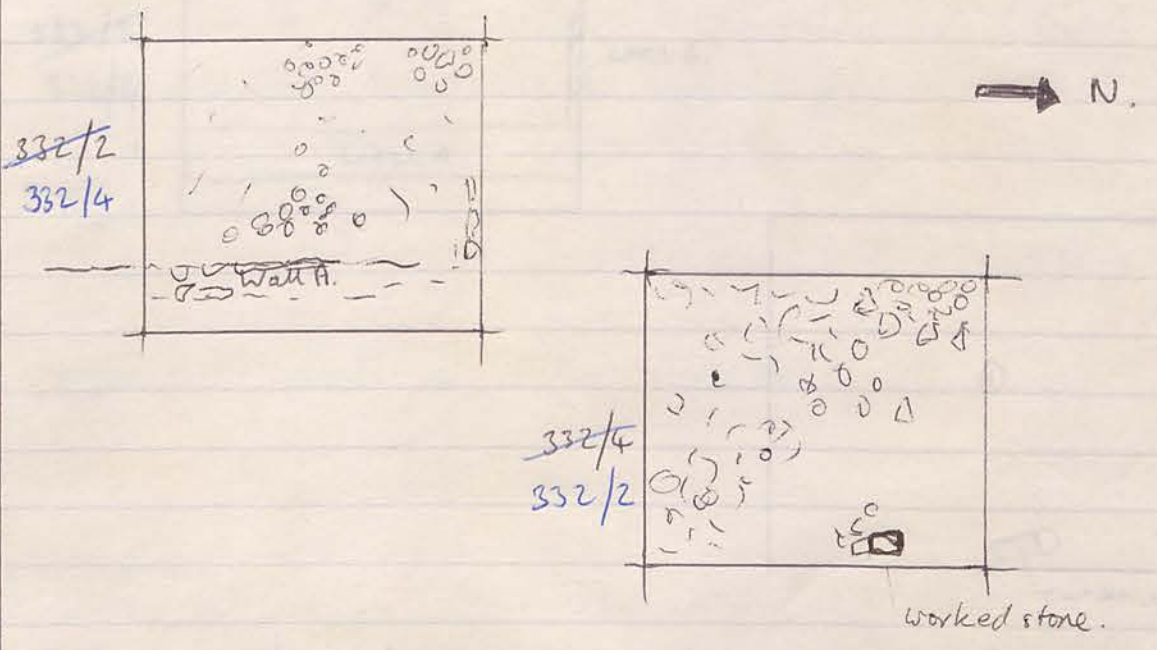 N.
332/2
332/4
Wall A.
332/4
332/2
worked stone.